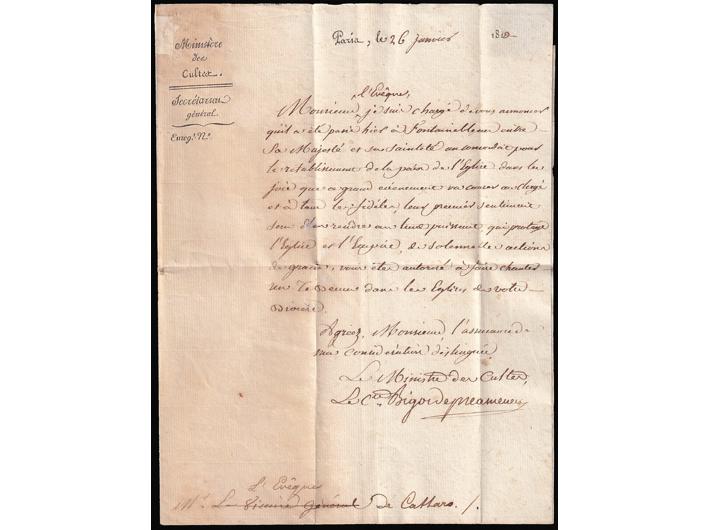 Ministère
des
Cultes.
Secrétariat
général.
Enreg. N.º
Paris, le 26 janvier 181
l'Evêque,
Monsieur, je suis chargé de vous annoncer
qu'il a été passé hier à Fontainebleau entre
Sa Majesté et sa sainteté un concordat pour
le rétablissement de la paix de l'Eglise dans la
joie que ce grand évenement va causer au clergé
et à tous les fidèles, leur premier sentiment
sera de rendre au tout puissant qui protège
l'Eglise et l'Empire, de solennelles actions
de graces, vous êtes autorisé à faire chanter
un Te Deum dans les Eglises de votre
Diocèse.
Agréez, Monsieur, l'assurance de
ma considération distinguée
Le Ministre des Cultes,
Le Cte Bigot de preameneu
l'Evêque
Mr. Le Vicaire général de Cattaro. /.